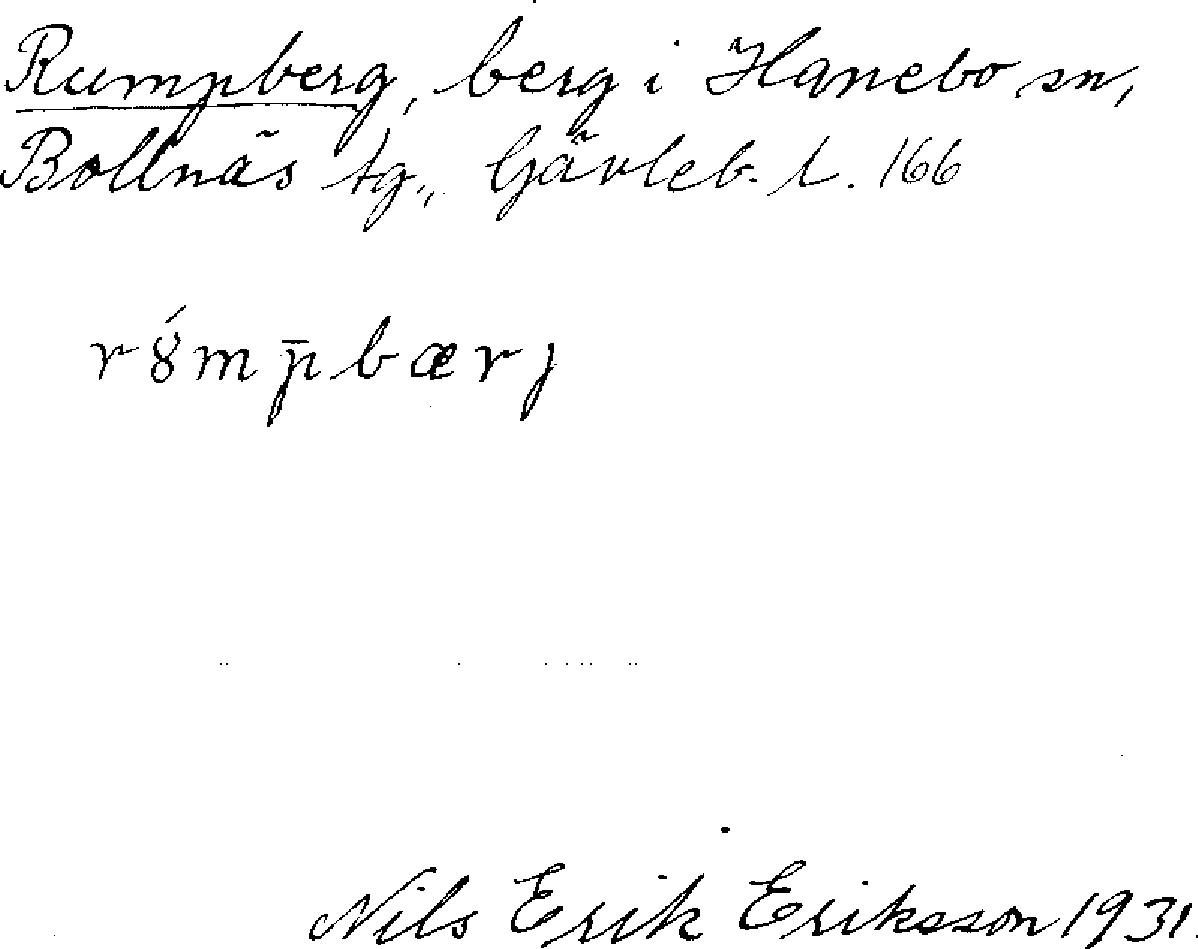 Rumpberg, berg i Hanebo sn,
Bollnäs tg., Gävleb. l. 166
r8́mp̄bærj
Nils Erik Eriksson 1931.